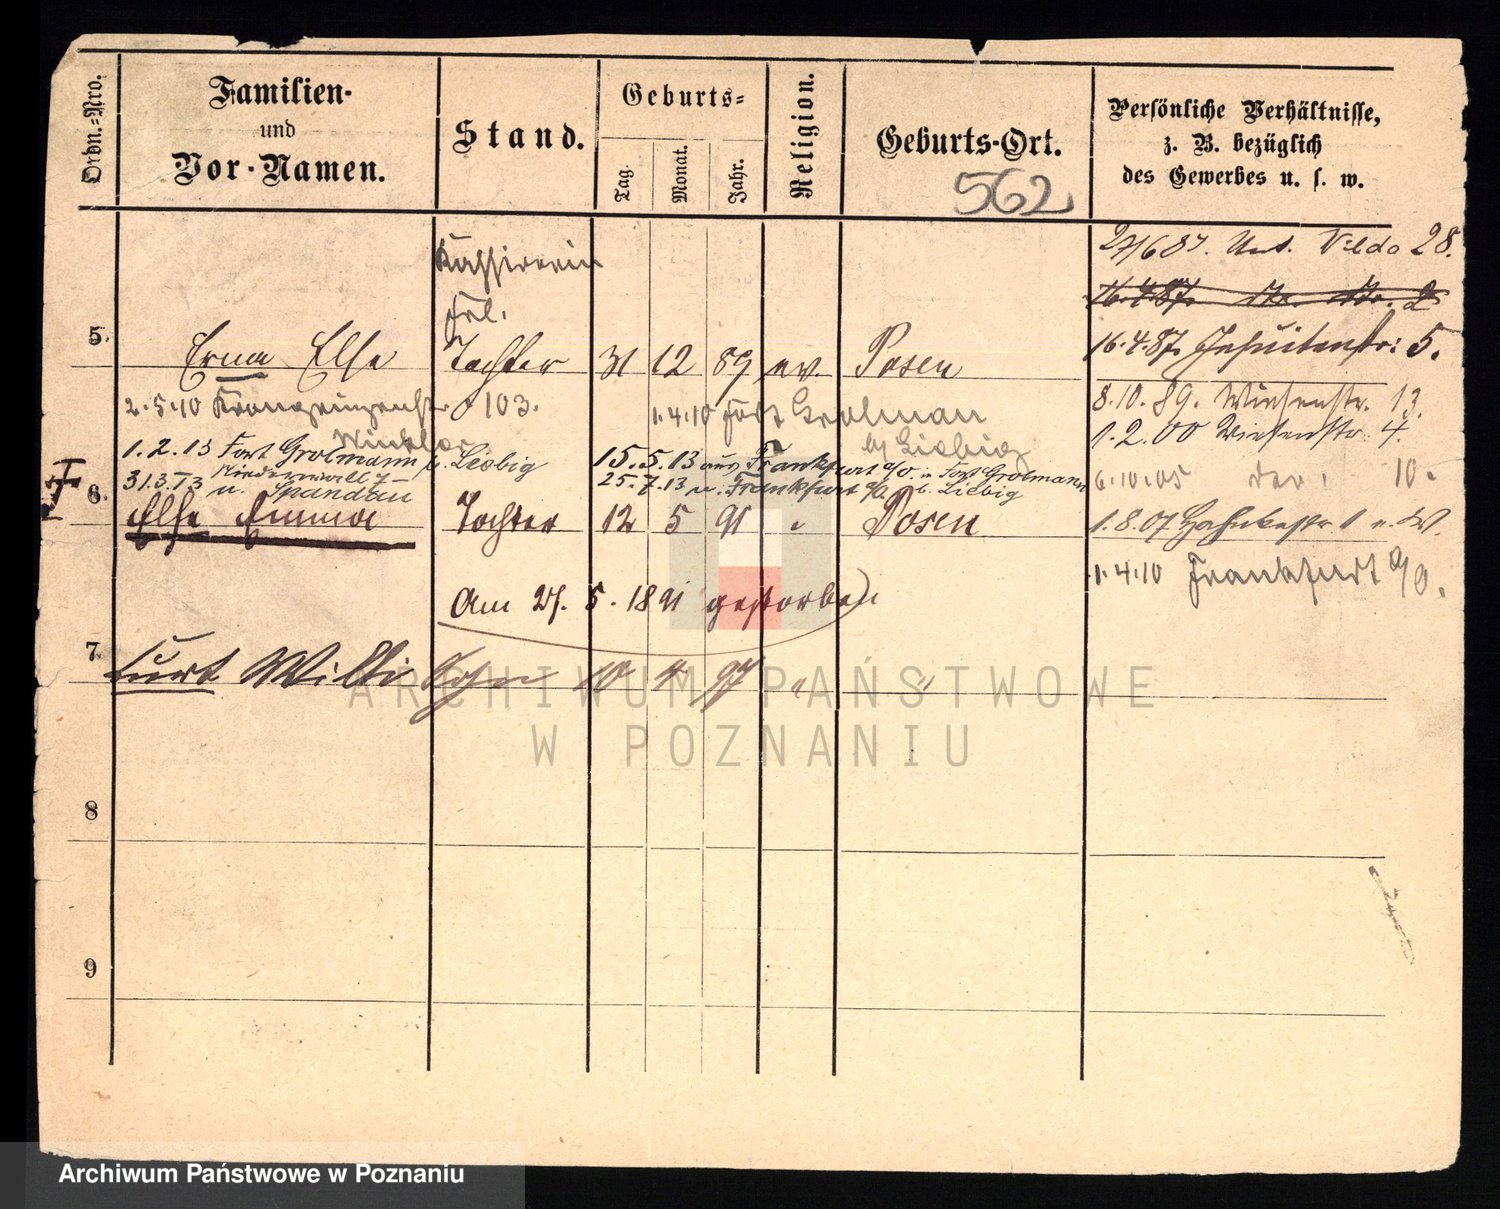 Ordn.-Nro.
Familien-
und
Vor-Namen.
Stand.
Geburts-
Tag.
Monat.
Jahr.
Religion.
Geburts-Ort.
562
Persönliche Verhältnisse,
z. B. bezüglich
des Gewerbes u. s. w.
Kassiererin
Frl.
5. Erna Else Tochter 31 12 89 ev. Posen
2.5.10 Kronprinzenstr. 103.
1.4.10 Fort Grolman
b/ Liebig
Winkler
1.2.13 Fort Grolmann b. Liebig
15.5.13 aus Frankfurt a/O. n. Fort Grolmann
31.3.13 Niederwall 7
25.7.13 n. Frankfurt a/O b. Liebig
n. Spandau
6. Else Emma Tochter 12 5 91 " Posen
Am 21. 5. 1891 gestorben
7. Curt Willi Sohn 10 4 97 " "
8
9
27/6 87. Unt. Wilda 28.
16.4.87. 2
16.4.87. Jesuitenstr: 5.
8.10.89. Wiesenstr. 13.
1.2.00 Wiesenstr. 4.
6.10.05 10.
1.8.07 1 n. W.
1.4.10 Frankfurt a/O.
ARCHIWUM PAŃSTWOWE
W POZNANIU
Archiwum Państwowe w Poznaniu